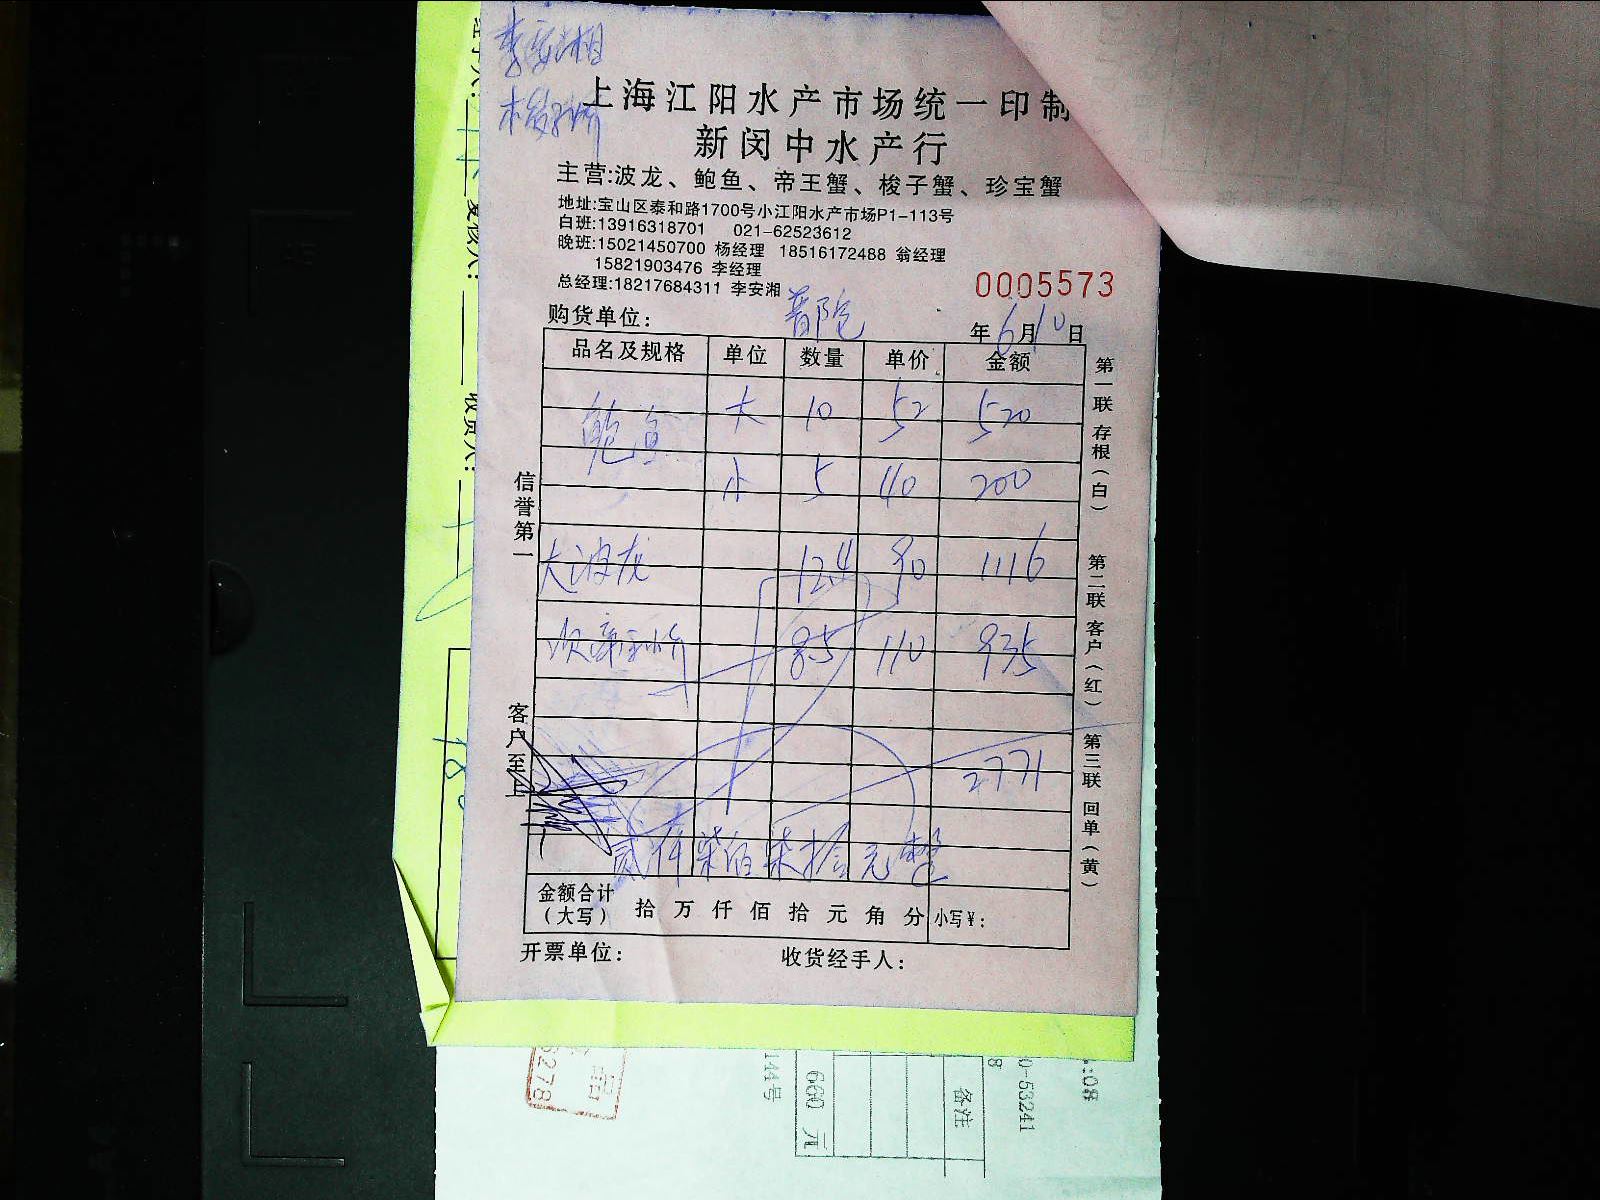 李安湘
上海江阳水产市场统一印制
新闵中水产行
主营:波龙、鲍鱼、帝王蟹、梭子蟹、珍宝蟹
地址:宝山区泰和路1700号小江阳水产市场P1-113号
白班:13916318701 021-62523612
晚班:15021450700 杨经理 18516172488 翁经理
15821903476 李经理
总经理:18217684311 李安湘
0005573
购货单位: 普陀
年6月10日
品名及规格 单位 数量 单价 金额
鲍鱼 大 10 52 520
小 5 40 200
大波龙 12.4 90 1116
8.5 110 935
2771
贰仟柒佰柒拾元整
金额合计(大写) 拾 万 仟 佰 拾 元 角 分 小写¥:
开票单位: 收货经手人:
信誉第一
客户至上
第一联 存根(白)
第二联 客户(红)
第三联 回单(黄)
复核人:
收货人:
6278
144号
660 元
备注
0-53241
:08